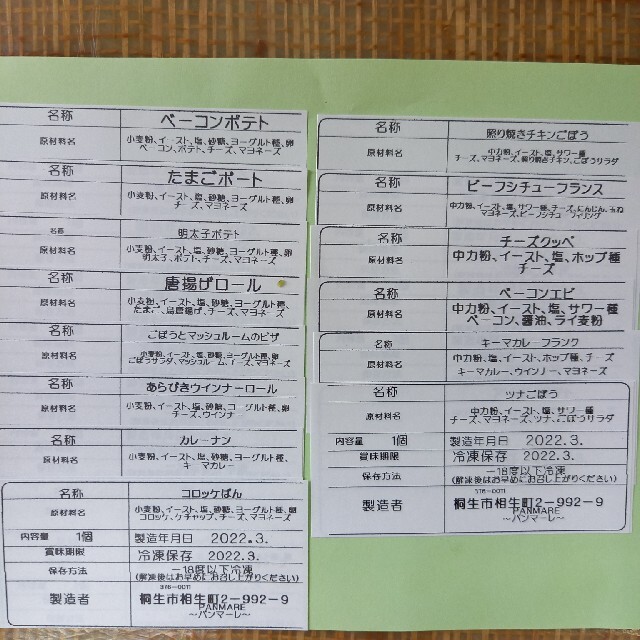 名称 ベーコンポテト
原材料名 小麦粉、イースト、塩、砂糖、ヨーグルト種、卵
ベーコン、ポテト、チーズ、マヨネーズ
名称 たまごボート
原材料名 小麦粉、イースト、塩、砂糖、ヨーグルト種、卵
チーズ、マヨネーズ
名称 明太子ポテト
原材料名 小麦粉、イースト、塩、砂糖、ヨーグルト種、卵
明太子、ポテト、チーズ、マヨネーズ
名称 唐揚げロール
原材料名 小麦粉、イースト、塩、砂糖、ヨーグルト種、
たまご、鳥唐揚げ、チーズ、マヨネーズ
名称 ごぼうとマッシュルームのピザ
原材料名 小麦粉、イースト、塩、砂糖、ヨーグルト種、卵
ごぼうサラダ、マッシュルーム、チーズ、マヨネーズ
名称 あらびきウインナーロール
原材料名 小麦粉、イースト、塩、砂糖、ヨーグルト種、卵
チーズ、ウインナー
名称 カレーナン
原材料名 小麦粉、イースト、塩、砂糖、ヨーグルト種、
キーマカレー
名称 コロッケぱん
原材料名 小麦粉、イースト、塩、砂糖、ヨーグルト種、卵
コロッケ、ケチャップ、チーズ、マヨネーズ
内容量 1個 製造年月日 2022.3.
賞味期限 冷凍保存 2022.3.
保存方法 −18度以下冷凍
(解凍後はお早めにお召し上がりください)
製造者 376-0011
桐生市相生町2−992−9
PANMARE
〜パンマーレ〜
名称 照り焼きチキンごぼう
原材料名 中力粉、イースト、塩、サワー種
チーズ、マヨネーズ、照り焼きチキン、ごぼうサラダ
名称 ビーフシチューフランス
原材料名 中力粉、イースト、塩、サワー種、チーズ、にんじん、玉ね
マヨネーズ、ビーフシチュ フィリング
名称 チーズクッペ
原材料名 中力粉、イースト、塩、ホップ種
チーズ
名称 ベーコンエピ
原材料名 中力粉、イースト、塩、サワー種
ベーコン、醤油、ライ麦粉
名称 キーマカレーフランク
原材料名 中力粉、塩、イースト、ホップ種、チーズ
キーマカレー、ウインナー、マヨネーズ
名称 ツナごぼう
原材料名 中力粉、イースト、塩、サワー種
チーズ、マヨネーズ、ツナ、ごぼうサラダ
内容量 1個 製造年月日 2022.3.
賞味期限 冷凍保存 2022.3.
保存方法 −18度以下冷凍
(解凍後はお早めにお召し上がりください)
製造者 376-0011
桐生市相生町2−992−9
PANMARE
〜パンマーレ〜